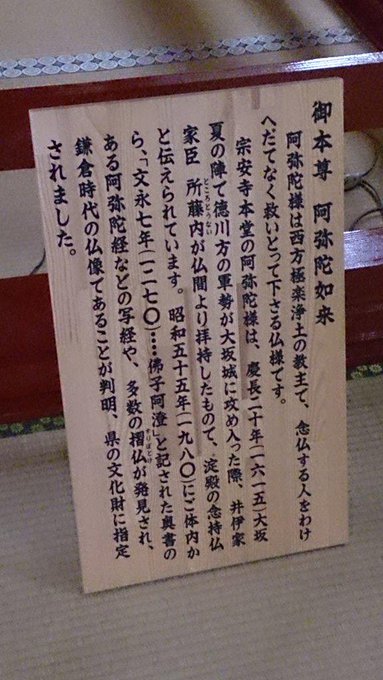 御本尊 阿弥陀如来
阿弥陀様は西方極楽浄土の教主で、念仏する人をわけ
へだてなく救いとって下さる仏様です。
宗安寺本堂の阿弥陀様は、慶長二十年(一六一五)大坂
夏の陣で徳川方の軍勢が大坂城に攻め入った際、井伊家
家臣 所藤内が仏間より拝持したもので、淀殿の念持仏
ところとうない
と伝えられています。昭和五十五年(一九八〇)にご体内か
ら、「文永七年(一二七〇)……佛子阿澄」と記された奥書の
ある阿弥陀経などの写経や、多数の摺仏が発見され、
すりぼとけ
鎌倉時代の仏像であることが判明、県の文化財に指定
されました。